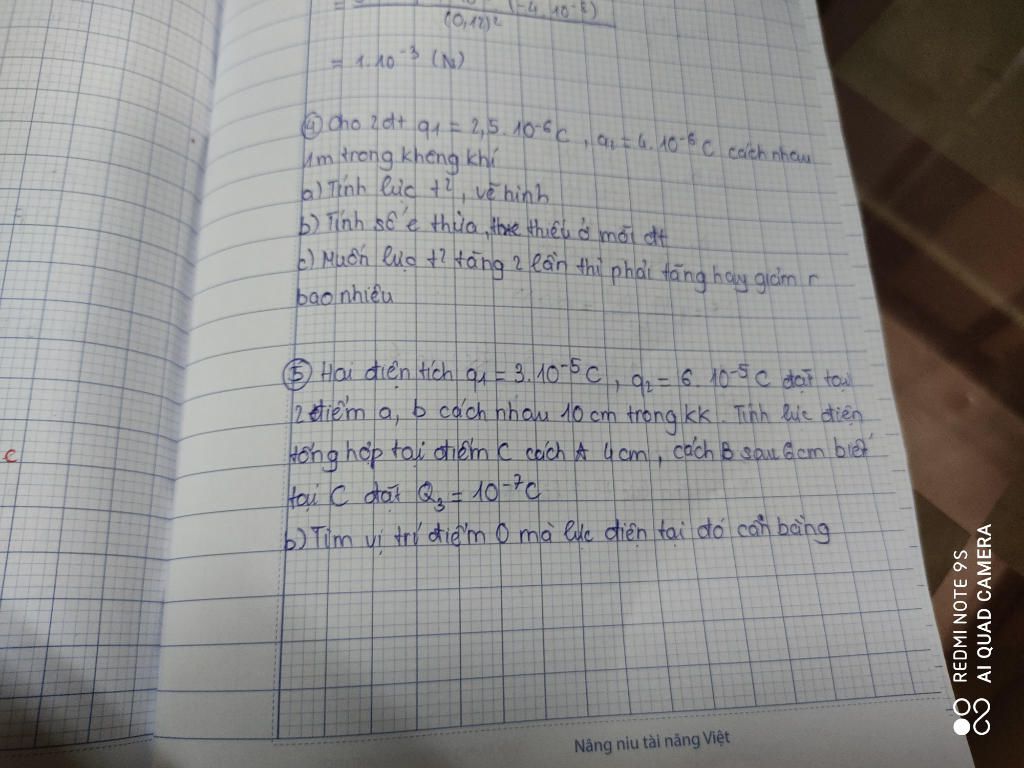 (-4.10⁻⁸)
(0,12)²
= 1.10⁻³ (N)
④ Cho 2đt q1 = 2,5.10⁻⁶C, q2 = 4.10⁻⁶C cách nhau
1m trong không khí
a) Tính lực t², vẽ hình
b) Tính số e thừa, thiếu ở mỗi đt
c) Muốn lực t² tăng 2 lần thì phải tăng hay giảm r
bao nhiêu
⑤ Hai điện tích q1 = 3.10⁻⁵C, q2 = 6.10⁻⁵C đặt tại
2 điểm a, b cách nhau 10cm trong kk. Tính lực điện
tổng hợp tại điểm C cách A 4cm, cách B 6cm biết
tại C đặt Q3 = 10⁻⁷C
b) Tìm vị trí điểm O mà lực điện tại đó cân bằng
C
Nâng niu tài năng Việt
REDMI NOTE 9S
AI QUAD CAMERA